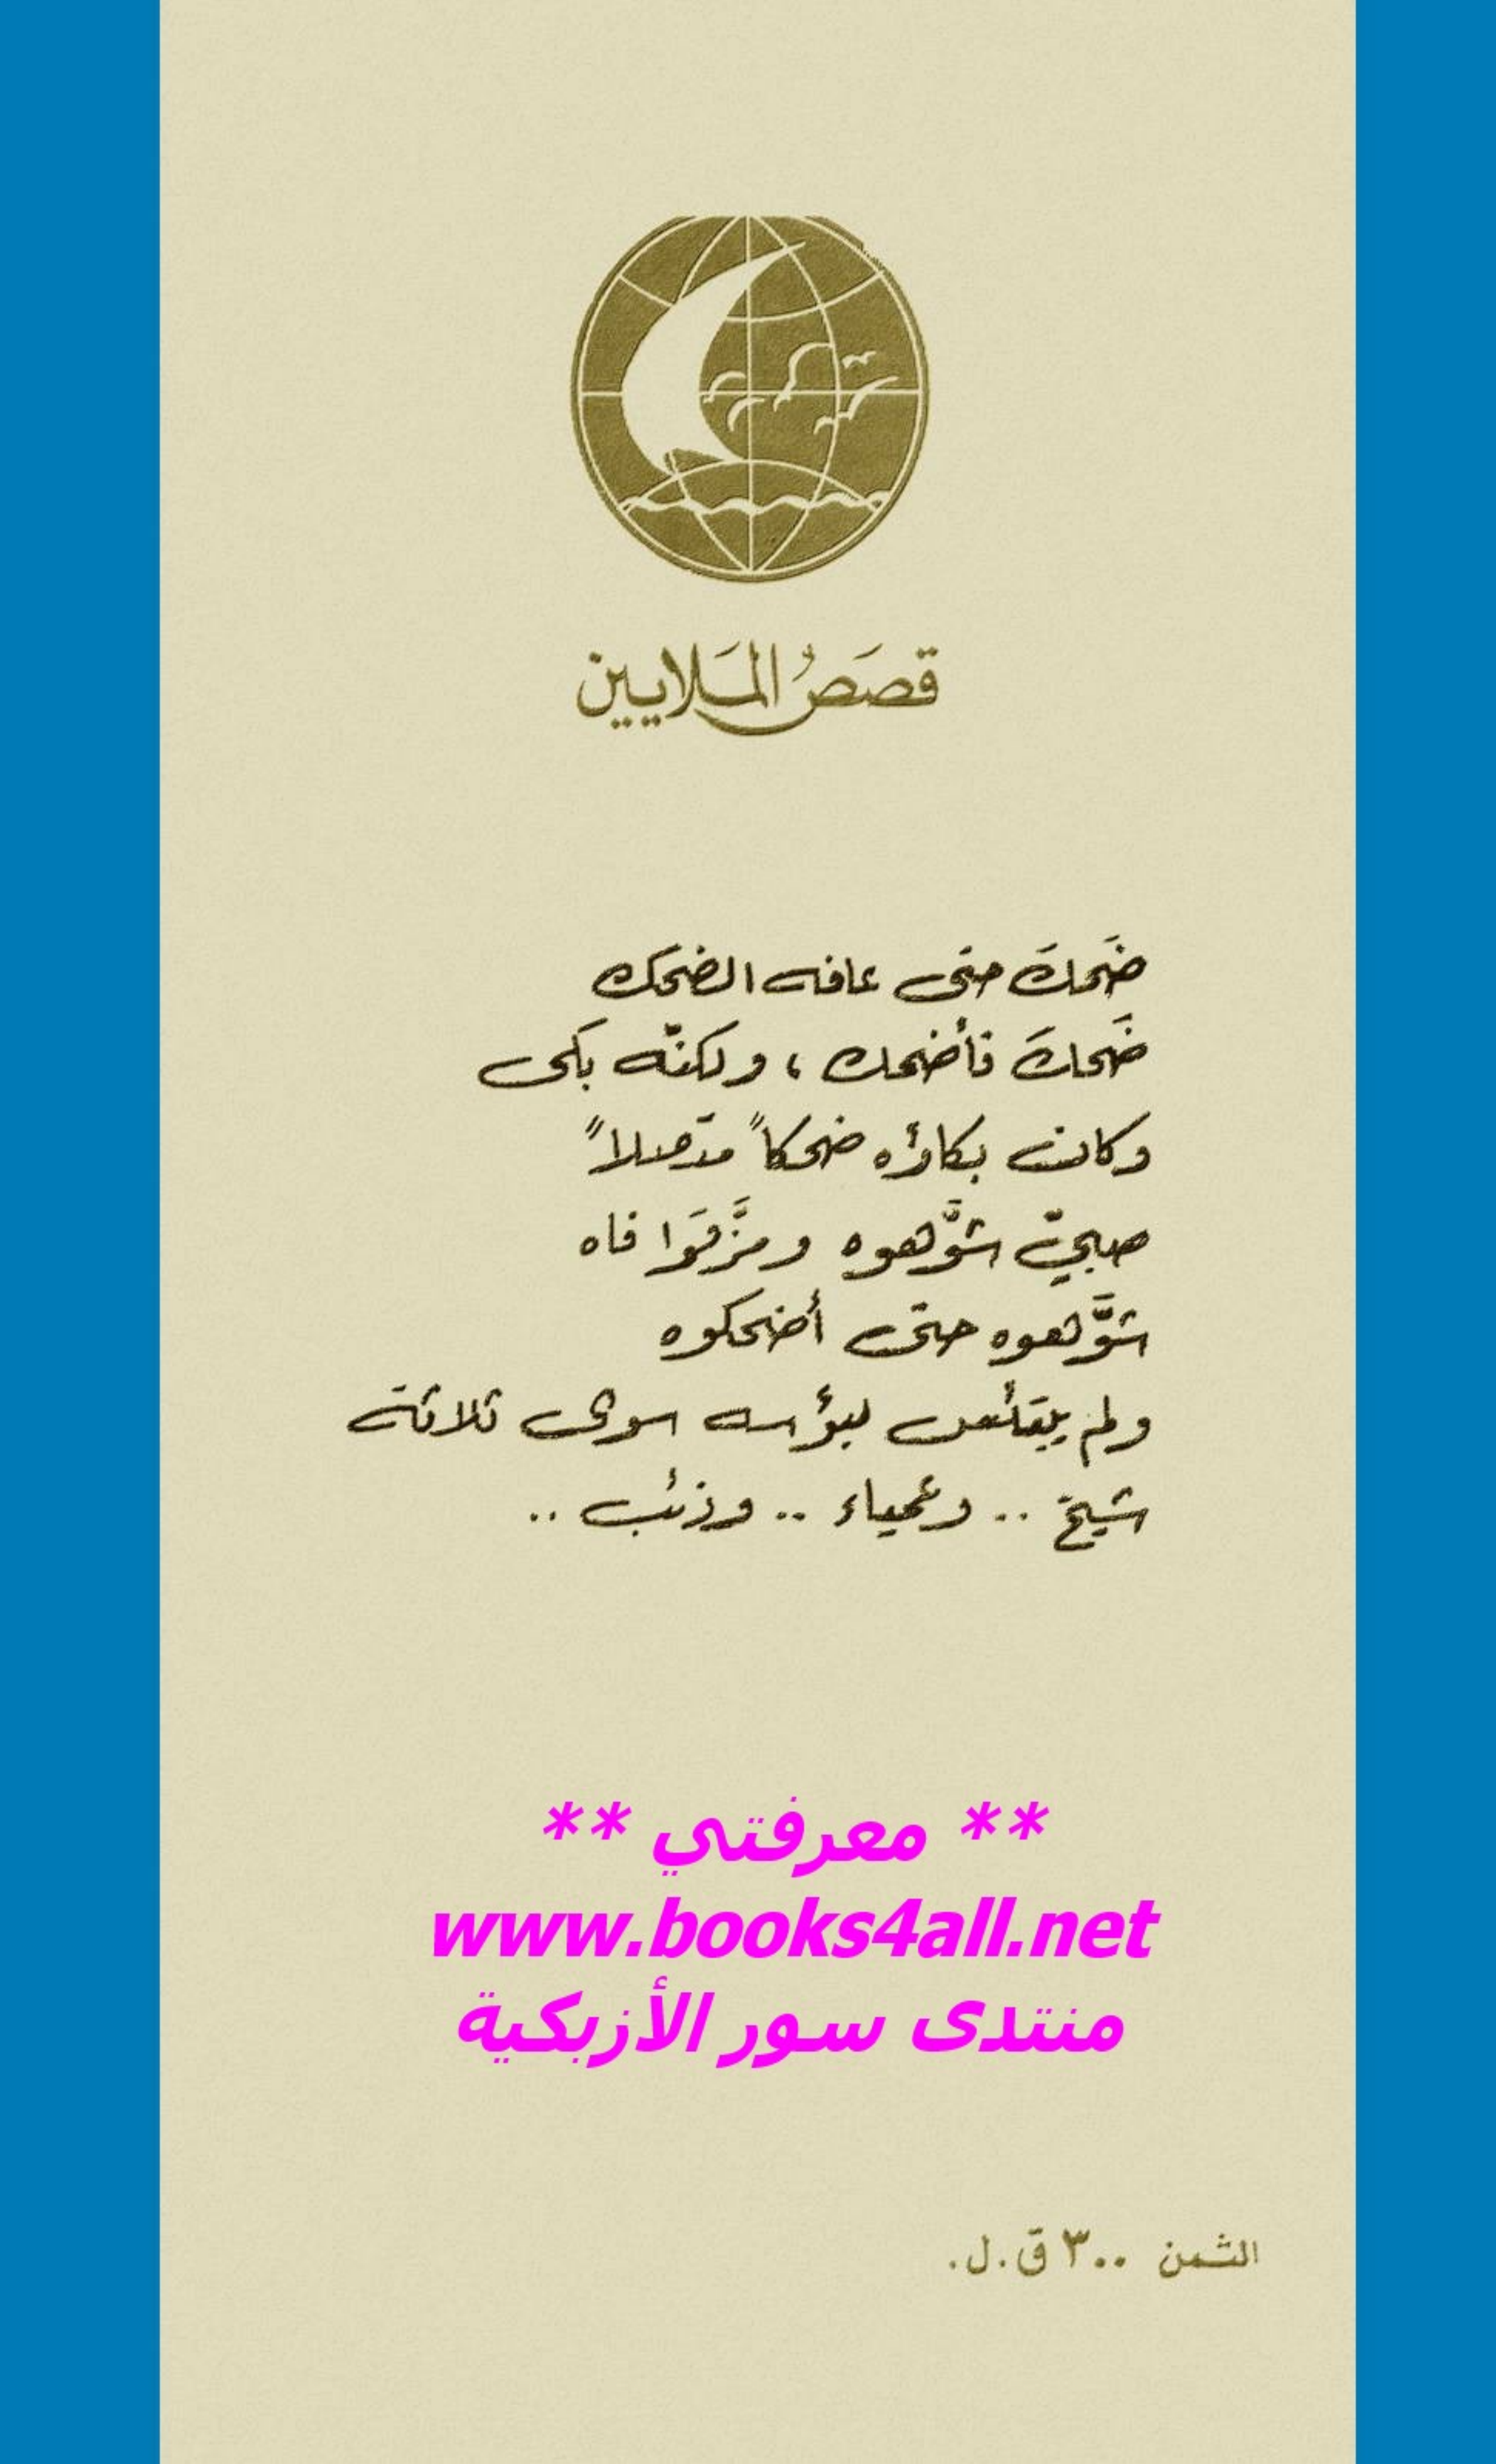 قصَصُ المَلايين
ضَحكَ حتى عافه الضحك
ضَحكَ فأضحك ، ولكنّه بكى
وكانت بكاؤه ضحكاً متصلاً
صبيّ شوَّهوه ومزَّقَوا فاه
شوَّهوه حتّى أضحكوه
ولم يبتئس لبؤسه سوى ثلاثة
شيخ .. وعمياء .. وذئب ..
** معرفتي **
www.books4all.net
منتدى سور الأزبكية
الثمن ٣٠٠ ق.ل.